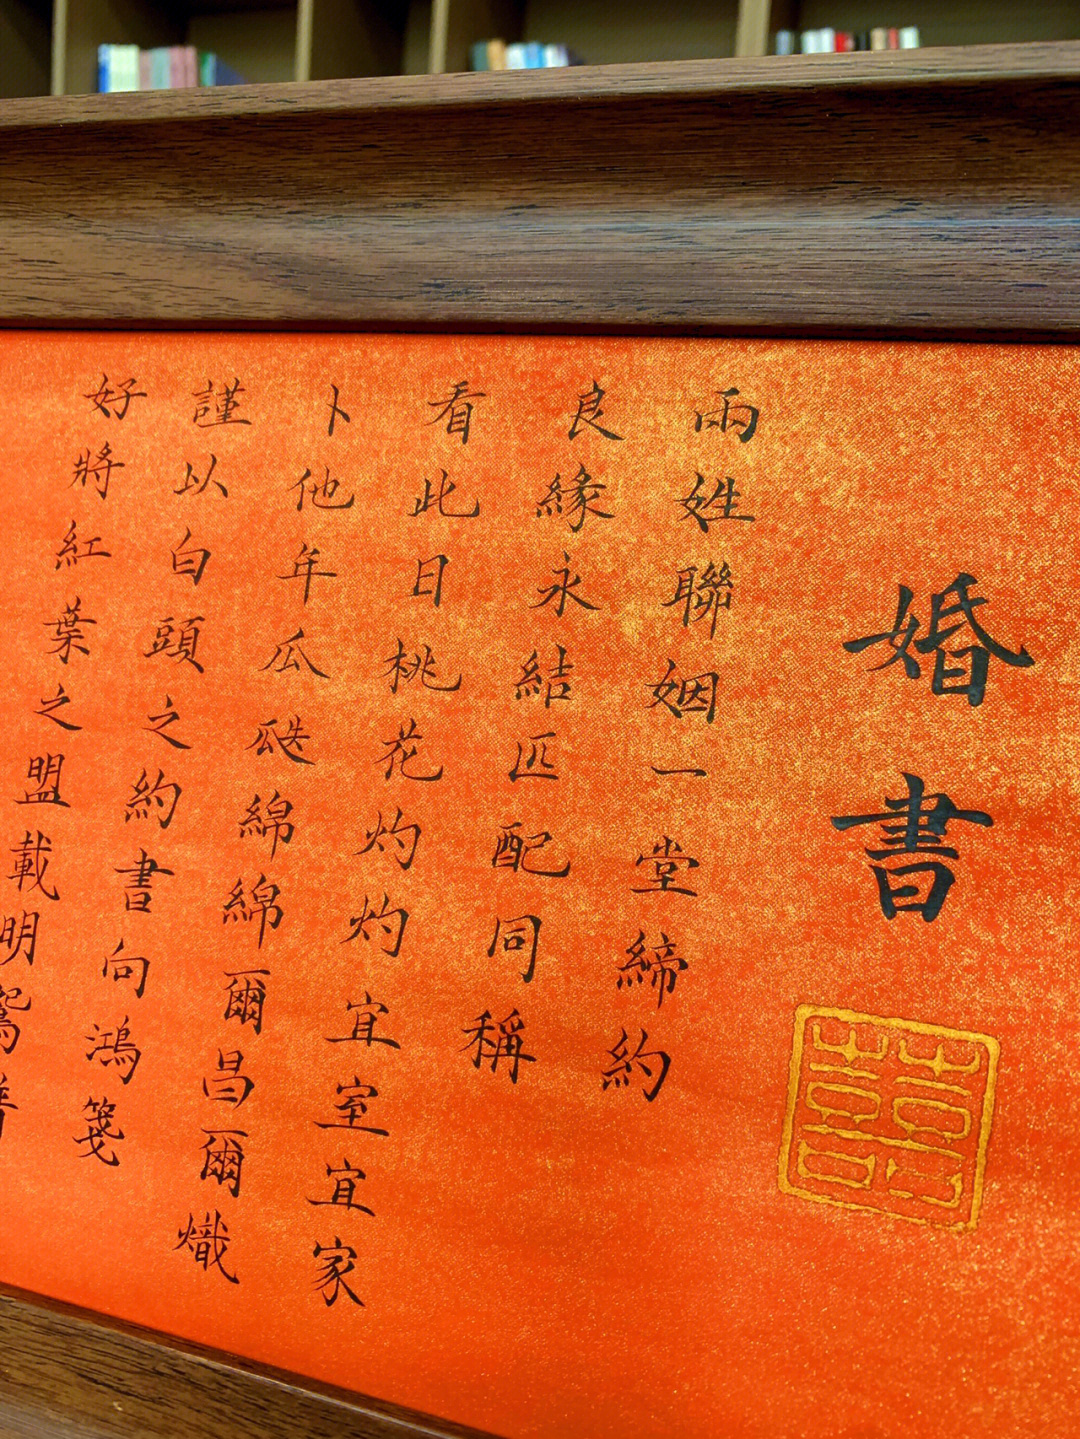 婚書
囍
兩姓聯姻一堂締約
良緣永結匹配同稱
看此日桃花灼灼宜室宜家
卜他年瓜瓞綿綿爾昌爾熾
謹以白頭之約書向鴻箋
好將紅葉之盟載明鴛譜